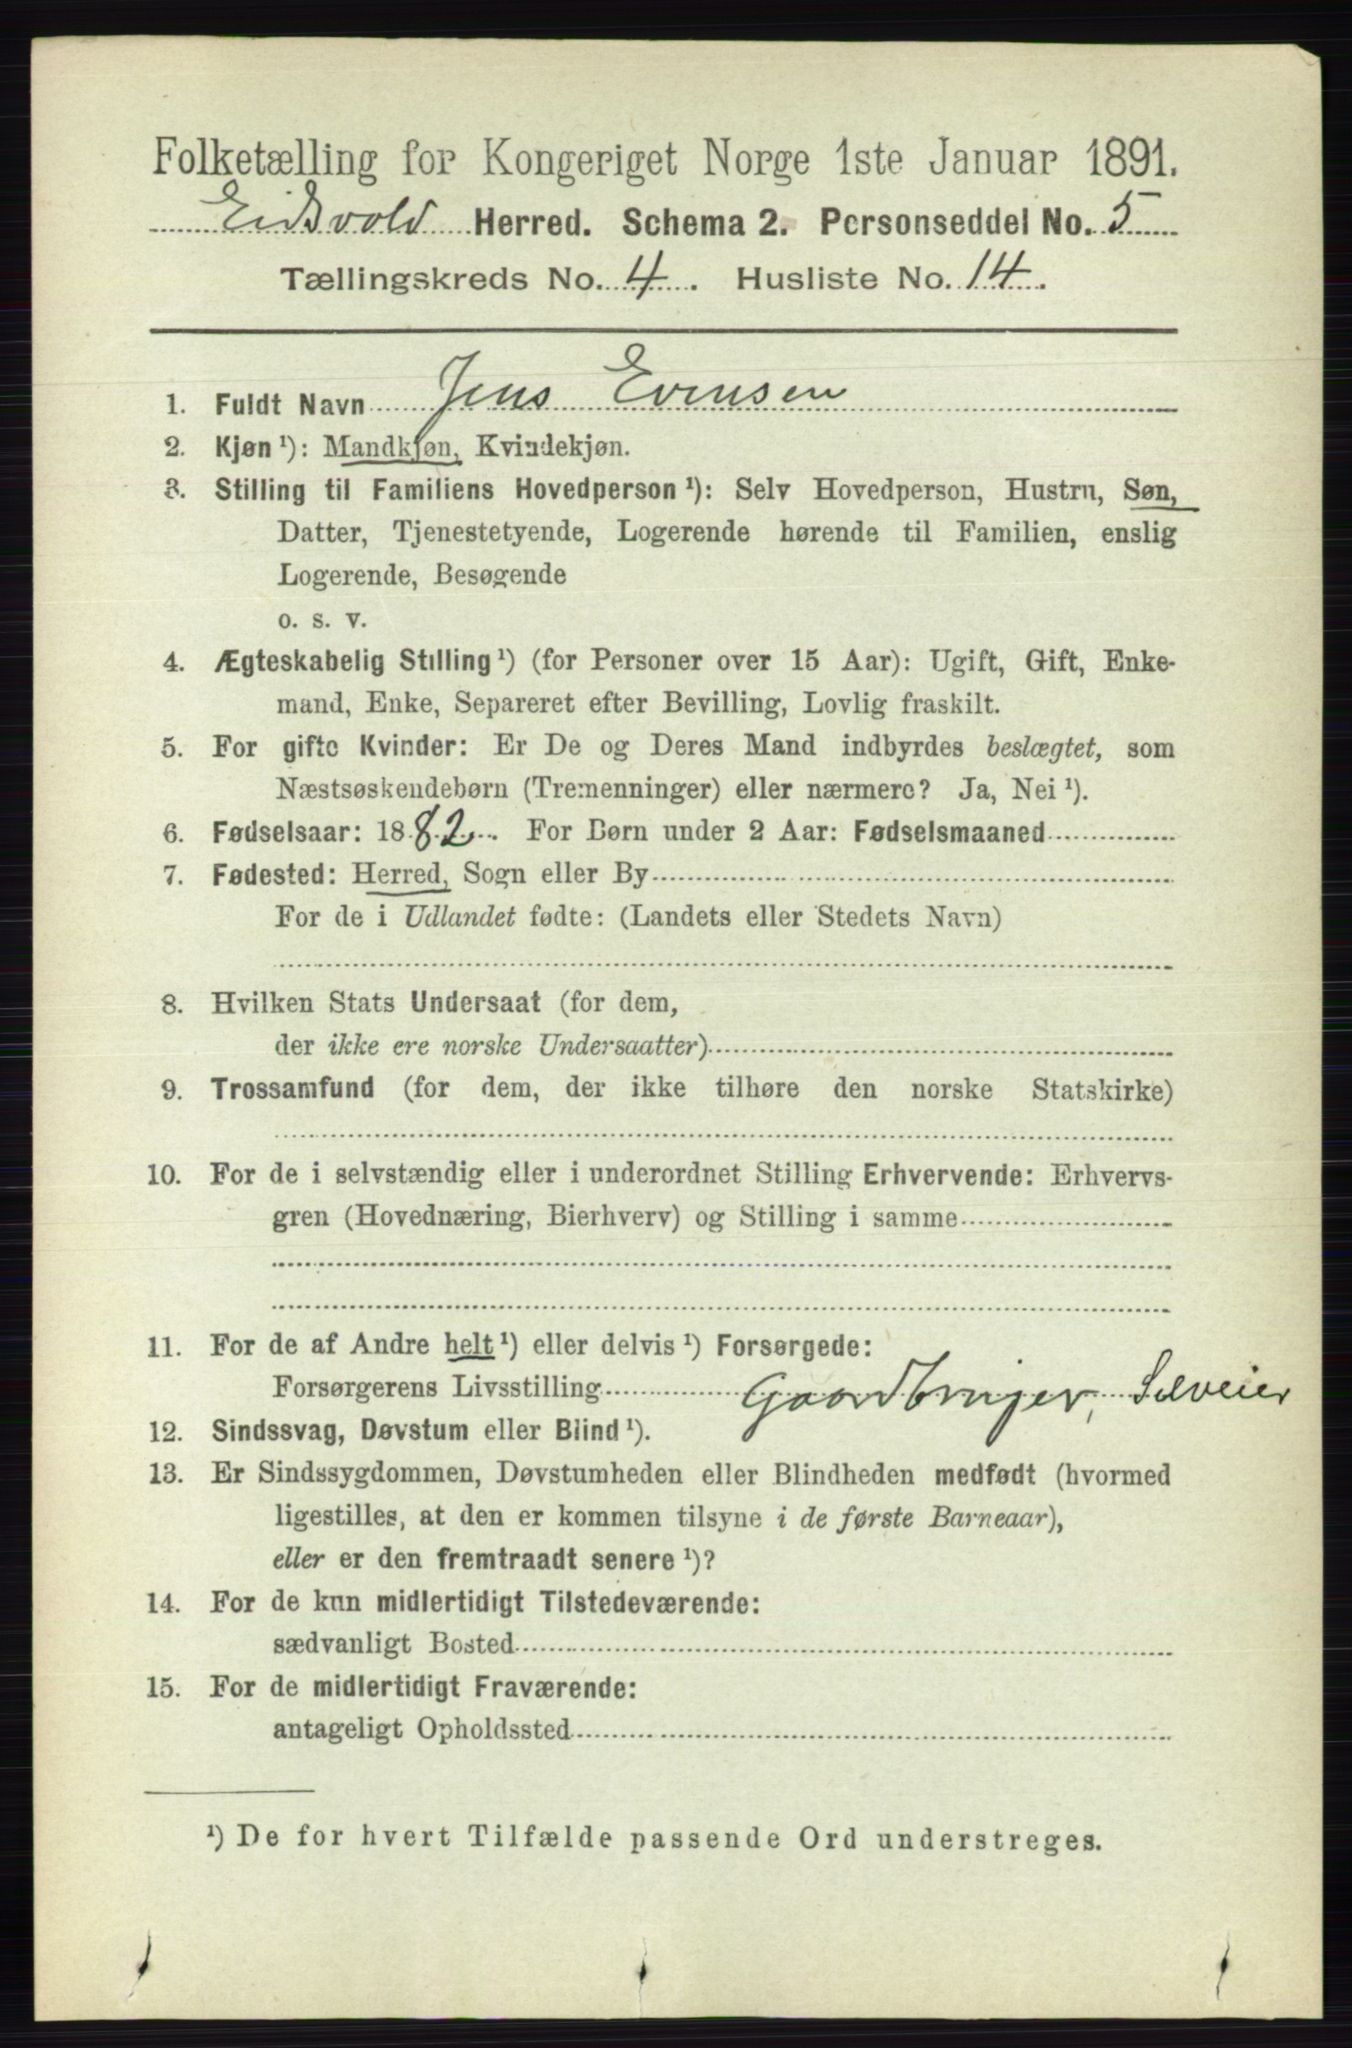 Folketælling for Kongeriget Norge 1ste Januar 1891.
Eidsvold Herred. Schema 2. Personseddel No. 5
Tællingskreds No. 4. Husliste No. 14.
1. Fuldt Navn Jens Evensen
2. Kjøn ¹): Mandkjøn, Kvindekjøn.
3. Stilling til Familiens Hovedperson ¹): Selv Hovedperson, Hustru, Søn,
Datter, Tjenestetyende, Logerende hørende til Familien, enslig
Logerende, Besøgende
o. s. v.
4. Ægteskabelig Stilling ¹) (for Personer over 15 Aar): Ugift, Gift, Enke-
mand, Enke, Separeret efter Bevilling, Lovlig fraskilt.
5. For gifte Kvinder: Er De og Deres Mand indbyrdes beslægtet, som
Næstsøskendebørn (Tremenninger) eller nærmere? Ja, Nei ¹).
6. Fødselsaar: 1882. For Børn under 2 Aar: Fødselsmaaned
7. Fødested: Herred, Sogn eller By
For de i Udlandet fødte: (Landets eller Stedets Navn)
8. Hvilken Stats Undersaat (for dem,
der ikke ere norske Undersaatter)
9. Trossamfund (for dem, der ikke tilhøre den norske Statskirke)
10. For de i selvstændig eller i underordnet Stilling Erhvervende: Erhvervs-
gren (Hovednæring, Bierhverv) og Stilling i samme
11. For de af Andre helt ¹) eller delvis ¹) Forsørgede:
Forsørgerens Livsstilling Gaardbruger, Selveier
12. Sindssvag, Døvstum eller Blind ¹).
13. Er Sindssygdommen, Døvstumheden eller Blindheden medfødt (hvormed
ligestilles, at den er kommen tilsyne i de første Barneaar),
eller er den fremtraadt senere ¹)?
14. For de kun midlertidigt Tilstedeværende:
sædvanligt Bosted
15. For de midlertidigt Fraværende:
antageligt Opholdssted
¹) De for hvert Tilfælde passende Ord understreges.